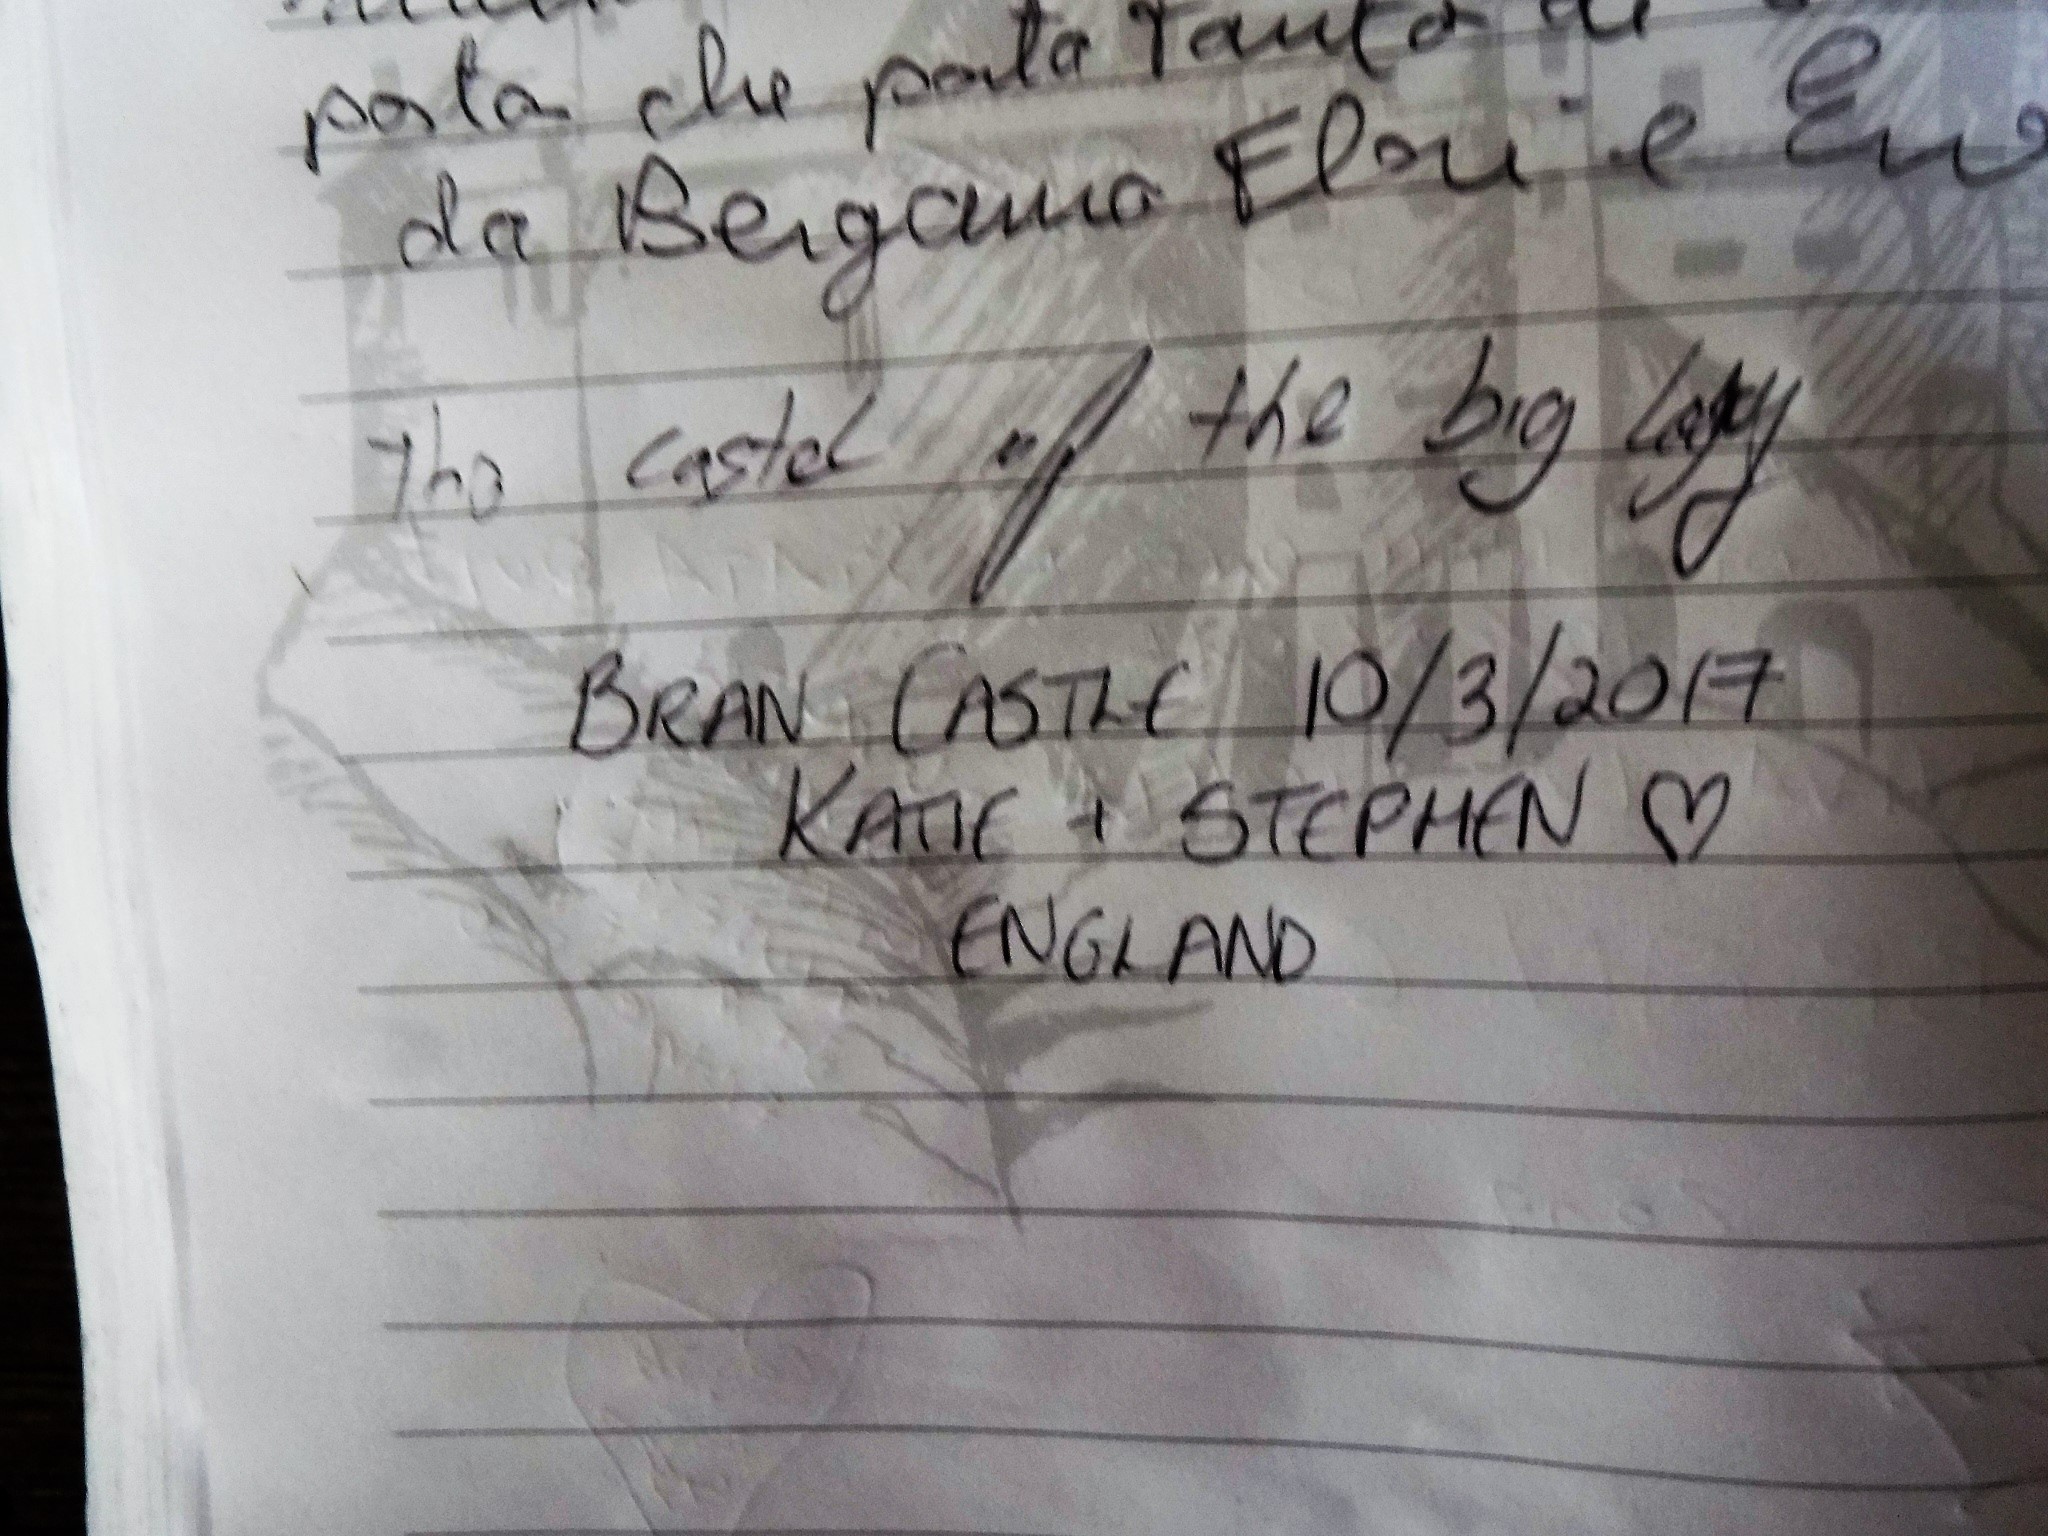 porta che porta tanta di
da Bergamo Flori e
The castel of the big
BRAN CASTLE 10/3/2017
KATIE + STEPHEN ♡
ENGLAND